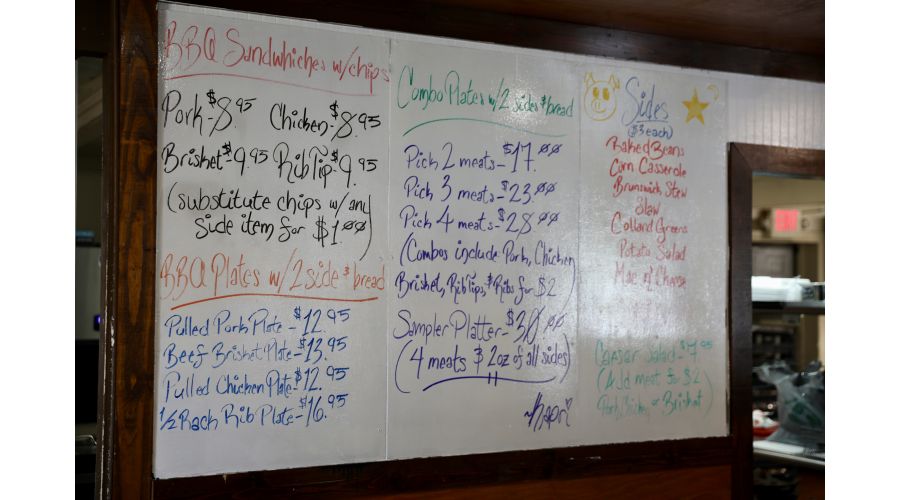 BBQ Sandwhiches w/chips
Pork-$8.95 Chicken-$8.95
Brisket-$9.95 Rib Tip-$9.95
(substitute chips w/any
side item for $1.00)
BBQ Plates w/2 side & bread
Pulled Pork Plate-$12.95
Beef Brisket Plate-$13.95
Pulled Chicken Plate-$12.95
1/2 Rack Rib Plate-$16.95
Combo Plates w/2 sides & bread
Pick 2 meats-$17.00
Pick 3 meats-$23.00
Pick 4 meats-$28.00
(Combos include Pork, Chicken
Brisket, Rib Tips, & Ribs for $2
Sampler Platter-$30.00
(4 meats & 2oz of all sides)
Sides
($3 each)
Baked Beans
Corn Casserole
Brunswick Stew
Slaw
Colland Greens
Potato Salad
Mac n' Cheese
Caesar Salad-$7.95
(Add meat for $2
Pork, Chicken or Brisket)